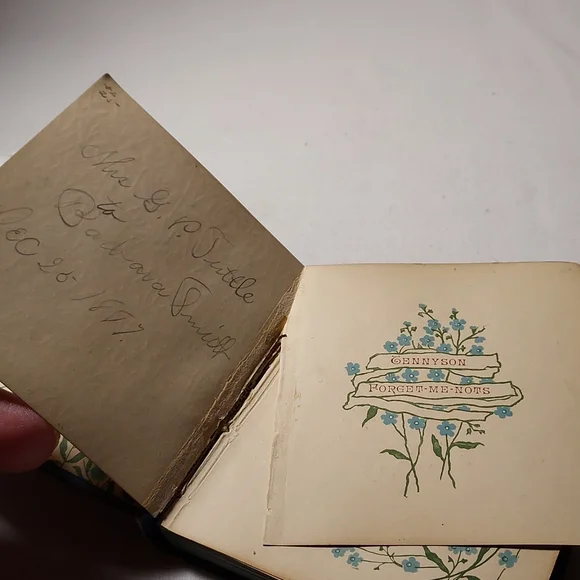 Mrs G. P. Tuttle
to
Barbara
Dec 25 1897.
TENNYSON
FORGET-ME-NOTS